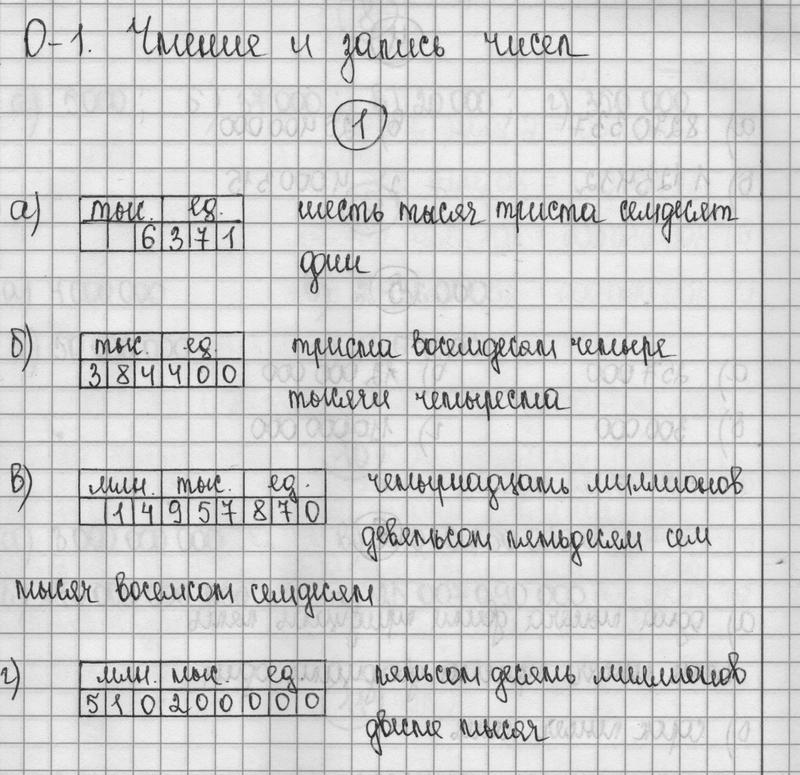 О-1. Чтение и запись чисел
1
а) тыс. ед. шесть тысяч триста семдесят
6 3 7 1
один
б) тыс. ед. триста восемдесят четыре
3 8 4 4 0 0
тысячи четыреста
в) млн. тыс. ед. четырнадцать миллионов
1 4 9 5 7 8 7 0
девятьсот пятьдесят сем
тысяч восемсот семдесят
г) млн. тыс. ед. пятьсот десять миллионов
5 1 0 2 0 0 0 0 0
двисте тысяч